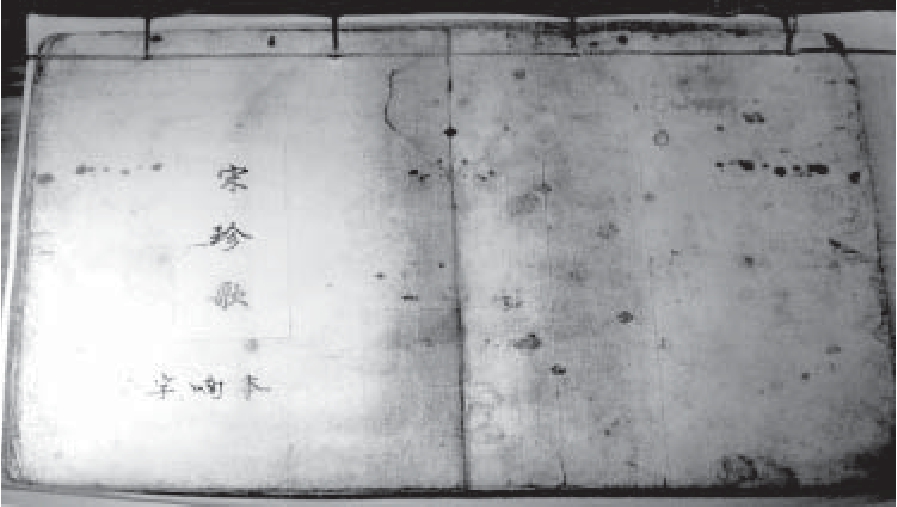 宋珍歌
字喃本